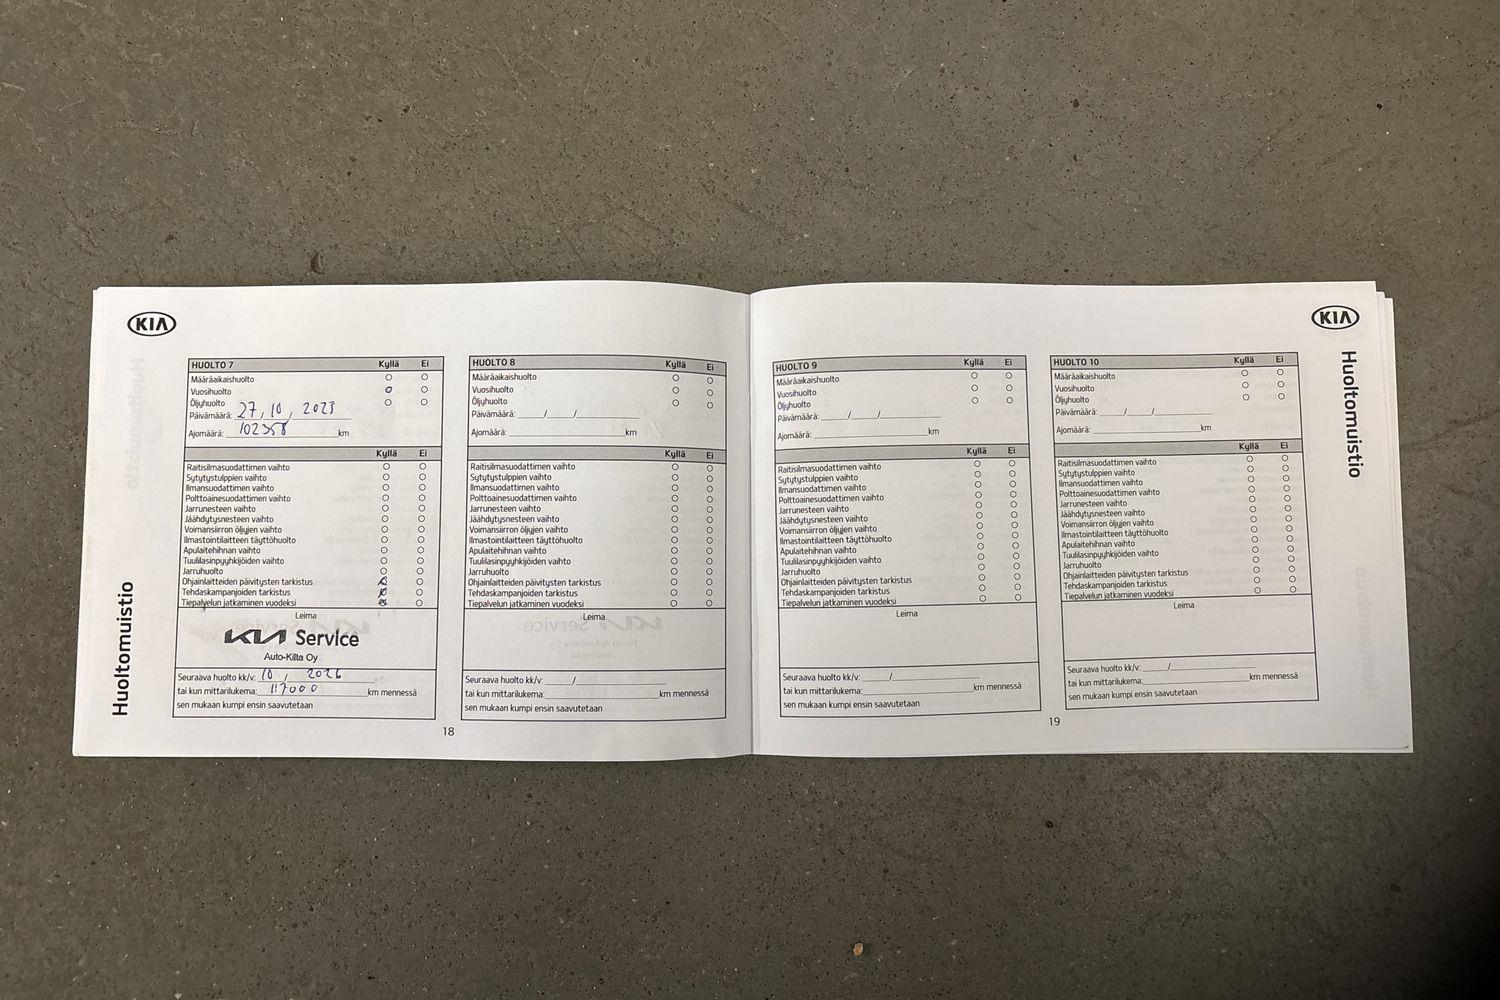 KIA
Huoltomuistio
HUOLTO 7 Kyllä Ei
Määräaikaishuolto
Vuosihuolto
Öljyhuolto
Päivämäärä: 27 / 10 / 2025
Ajomäärä: 102358 km
Kyllä Ei
Raitisilmasuodattimen vaihto
Sytytystulppien vaihto
Ilmansuodattimen vaihto
Polttoainesuodattimen vaihto
Jarrunesteen vaihto
Jäähdytysnesteen vaihto
Voimansiirron öljyjen vaihto
Ilmastointilaitteen täyttöhuolto
Apulaitehihnan vaihto
Tuulilasinpyyhkijöiden vaihto
Jarruhuolto
Ohjainlaitteiden päivitysten tarkistus
Tehdaskampanjoiden tarkistus
Tiepalvelun jatkaminen vuodeksi
Leima
KIA Service
Auto-Kilta Oy
Seuraava huolto kk/v: 10 / 2026
tai kun mittarilukema: 117000 km mennessä
sen mukaan kumpi ensin saavutetaan
HUOLTO 8 Kyllä Ei
Määräaikaishuolto
Vuosihuolto
Öljyhuolto
Päivämäärä: / /
Ajomäärä: km
Kyllä Ei
Raitisilmasuodattimen vaihto
Sytytystulppien vaihto
Ilmansuodattimen vaihto
Polttoainesuodattimen vaihto
Jarrunesteen vaihto
Jäähdytysnesteen vaihto
Voimansiirron öljyjen vaihto
Ilmastointilaitteen täyttöhuolto
Apulaitehihnan vaihto
Tuulilasinpyyhkijöiden vaihto
Jarruhuolto
Ohjainlaitteiden päivitysten tarkistus
Tehdaskampanjoiden tarkistus
Tiepalvelun jatkaminen vuodeksi
Leima
Seuraava huolto kk/v: /
tai kun mittarilukema: km mennessä
sen mukaan kumpi ensin saavutetaan
18
HUOLTO 9 Kyllä Ei
Määräaikaishuolto
Vuosihuolto
Öljyhuolto
Päivämäärä: / /
Ajomäärä: km
Kyllä Ei
Raitisilmasuodattimen vaihto
Sytytystulppien vaihto
Ilmansuodattimen vaihto
Polttoainesuodattimen vaihto
Jarrunesteen vaihto
Jäähdytysnesteen vaihto
Voimansiirron öljyjen vaihto
Ilmastointilaitteen täyttöhuolto
Apulaitehihnan vaihto
Tuulilasinpyyhkijöiden vaihto
Jarruhuolto
Ohjainlaitteiden päivitysten tarkistus
Tehdaskampanjoiden tarkistus
Tiepalvelun jatkaminen vuodeksi
Leima
Seuraava huolto kk/v: /
tai kun mittarilukema: km mennessä
sen mukaan kumpi ensin saavutetaan
HUOLTO 10 Kyllä Ei
Määräaikaishuolto
Vuosihuolto
Öljyhuolto
Päivämäärä: / /
Ajomäärä: km
Kyllä Ei
Raitisilmasuodattimen vaihto
Sytytystulppien vaihto
Ilmansuodattimen vaihto
Polttoainesuodattimen vaihto
Jarrunesteen vaihto
Jäähdytysnesteen vaihto
Voimansiirron öljyjen vaihto
Ilmastointilaitteen täyttöhuolto
Apulaitehihnan vaihto
Tuulilasinpyyhkijöiden vaihto
Jarruhuolto
Ohjainlaitteiden päivitysten tarkistus
Tehdaskampanjoiden tarkistus
Tiepalvelun jatkaminen vuodeksi
Leima
Seuraava huolto kk/v: /
tai kun mittarilukema: km mennessä
sen mukaan kumpi ensin saavutetaan
19
KIA
Huoltomuistio